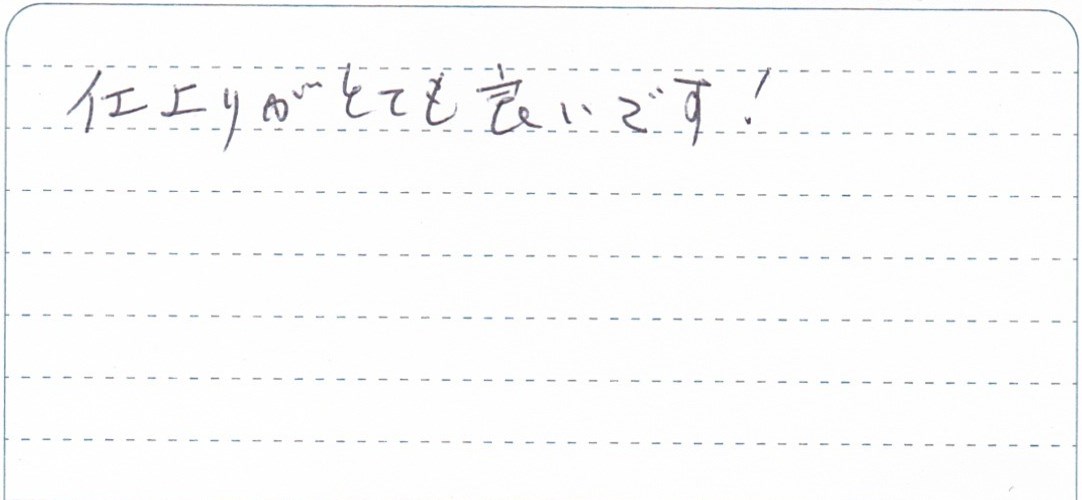 仕上りがとても良いです!